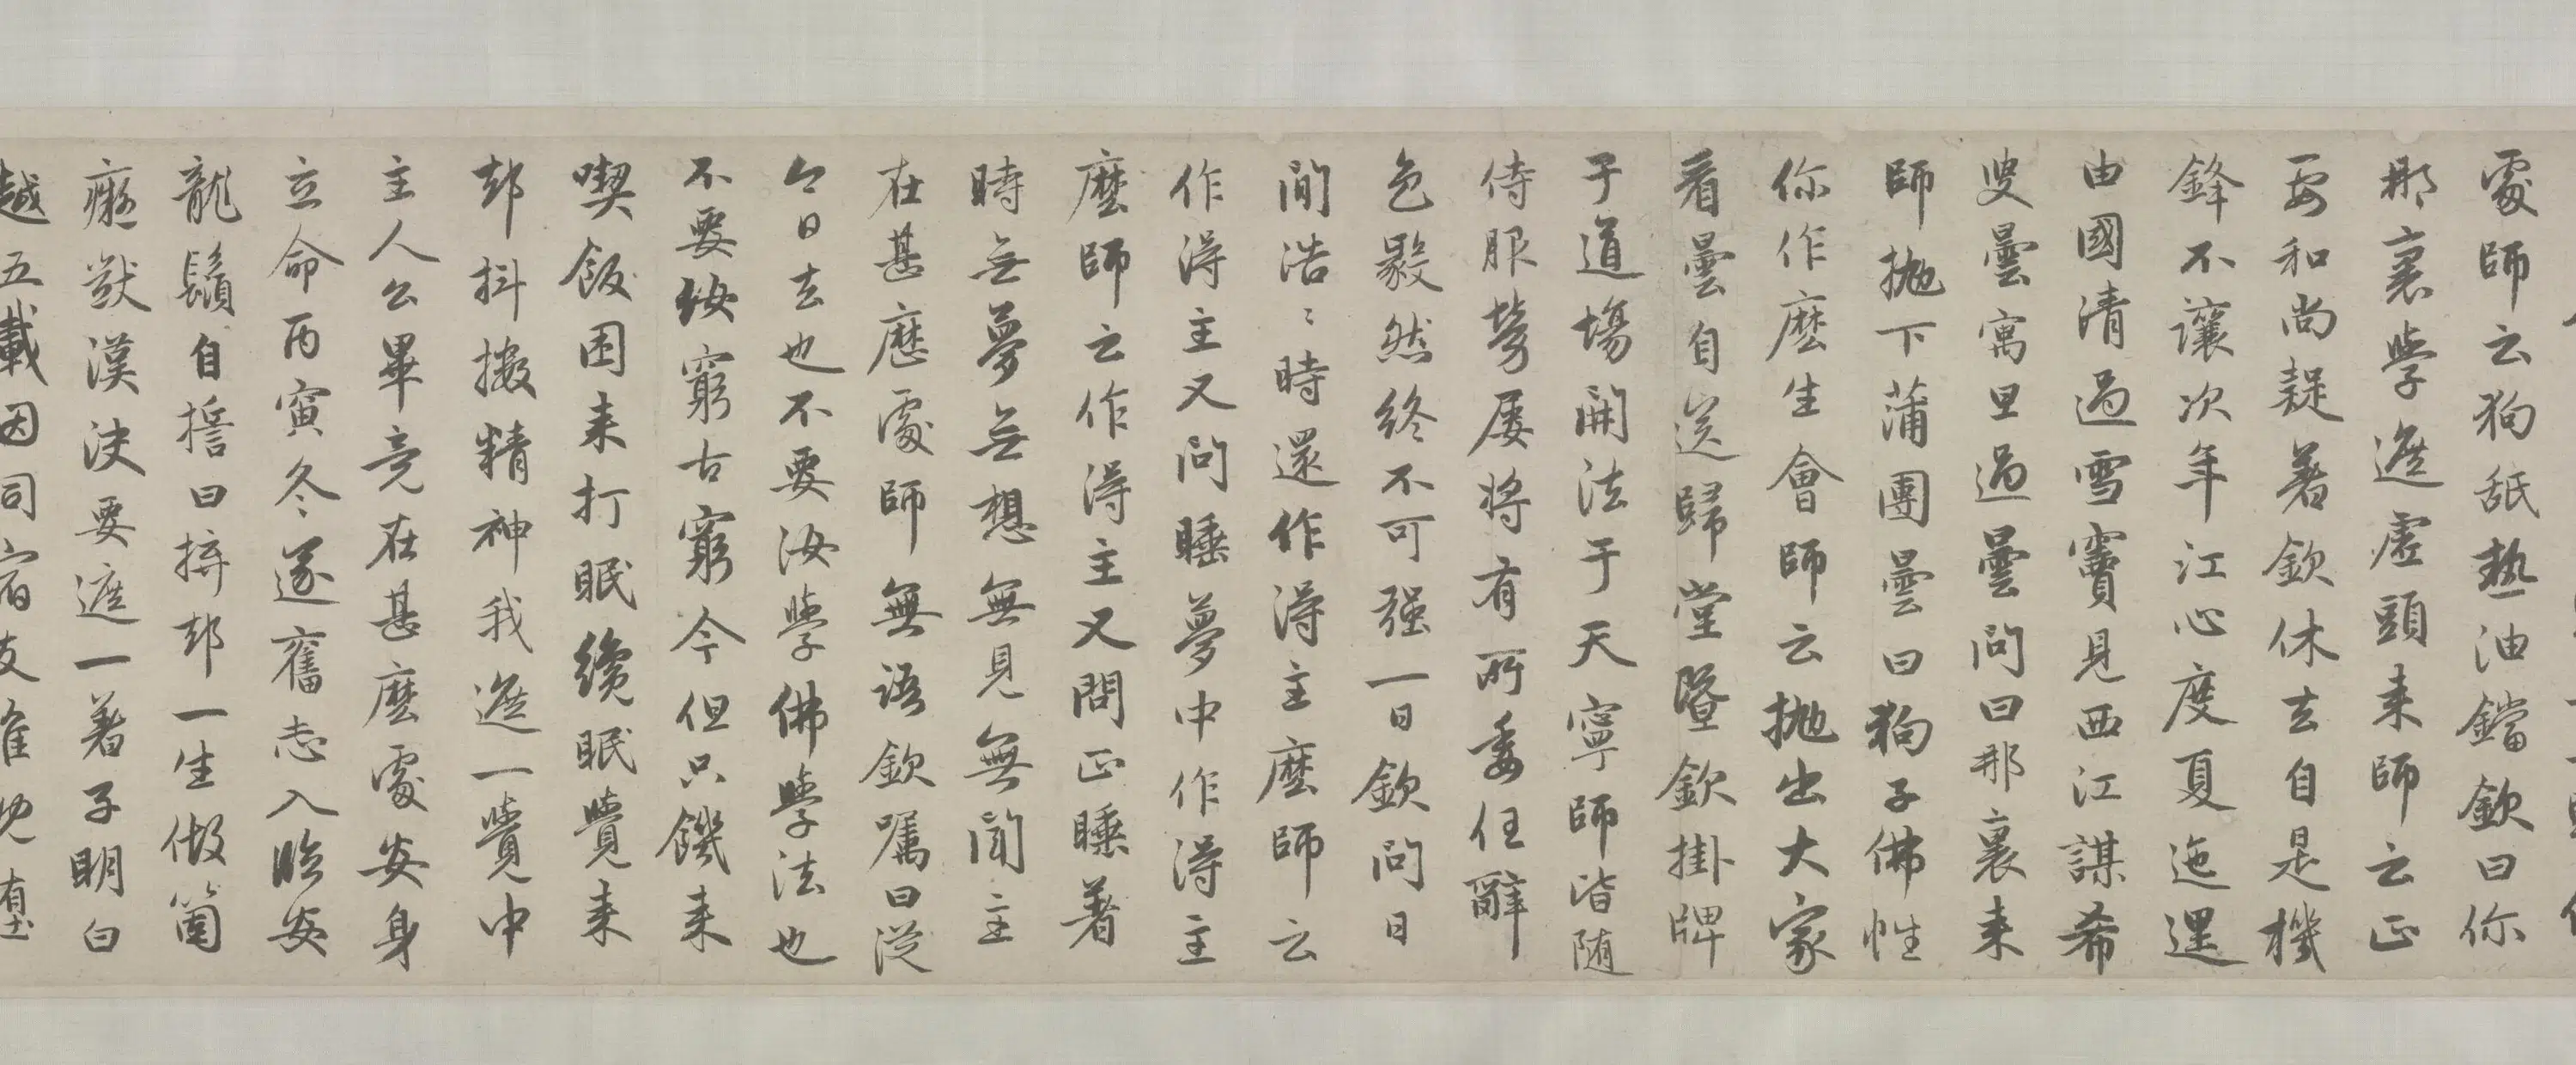 處師云狗舐熱油鐺欽曰你
那裏學遮虛頭來師云正
要和尚疑著欽休去自是機
鋒不讓次年江心度夏迤邐
由國清過雪竇見西江謀希
叟曇寓旦過曇問曰那裏來
師拋下蒲團曇曰狗子佛性
你作麽生會師云拋出大家
看曇自送歸堂暨欽掛牌
于道場開法于天寧師皆隨
侍服勞屢將有所委任辭
色毅然終不可强一日欽問日
間浩〻時還作得主麽師云
作得主又問睡夢中作得主
麽師云作得主又問正睡著
時無夢無想無見無聞主
在甚麽處師無語欽囑曰從
今日去也不要汝學佛學法也
不要汝窮古窮今但只饑來
喫飯困來打眠纔眠覺來
却抖擻精神我遮一覺中
主人公畢竟在甚麽處安身
立命丙寅冬遂奮志入臨安
龍鬚自誓曰拚却一生做箇
癡獃漢決要遮一著子明白
越五載因同宿友推枕墮